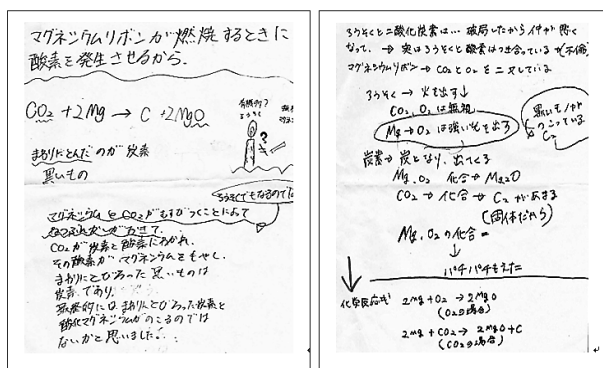 マグネシウムリボンが燃焼するときに
酸素を発生させるから.
CO₂ + 2Mg → C + 2MgO
まわりにとんだのが炭素
黒いもの
マグネシウムとCO₂がむすびつくことによって
CO₂が炭素と酸素にわかれ,
その酸素がマグネシウムをもやし,
まわりにとびちった黒いものは
炭素であり,
最終的にはまわりにとびちった炭素と
酸化マグネシウムがのこるのでは
ないかと思いました.
ろうそくと二酸化炭素は… 破局したから仲が悪く
なって. → 実はろうそくと酸素はつき合っている
マグネシウムリボン → CO₂とO₂を二又している
ろうそく → 火を出す↓
CO₂, O₂は無視
Mg → O₂は強い光を出す
黒いモノが
C₂
炭素→炭となり、出てくる
Mg, O₂ 化合 → Mg₂O
CO₂ → 化合 → C₂があまる
(固体だから)
Mg, O₂の化合 =
↓
パチパチもえた
化学反応式 2Mg + O₂ → 2MgO
(O₂の場合)
2Mg + CO₂ → 2MgO + C
(CO₂の場合)